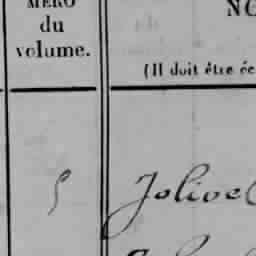 MÉRO
du
volume.
NO
(Il doit être éc
5 Jolivet